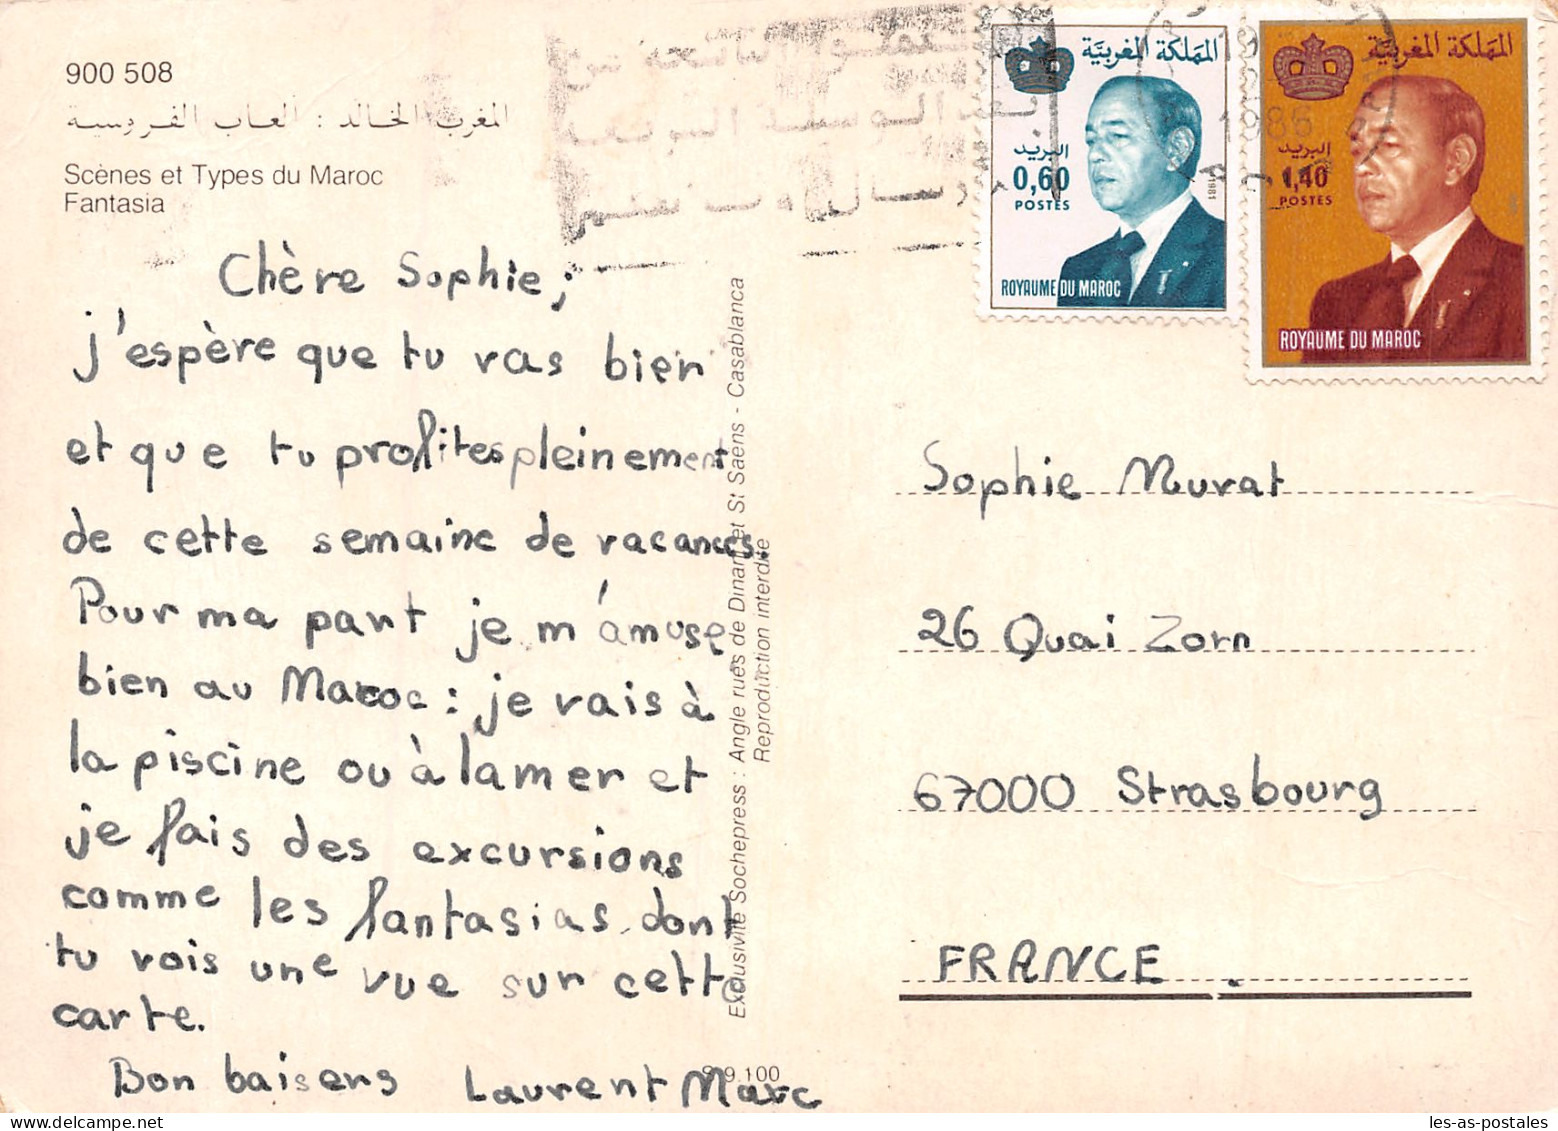 900 508
المغرب الخالد : العاب الفروسية
Scènes et Types du Maroc
Fantasia
Chère Sophie;
j'espère que tu vas bien
et que tu profites pleinement
de cette semaine de vacances.
Pour ma part je m'amuse
bien au Maroc : je vais à
la piscine ou à la mer et
je fais des excursions
comme les fantasias dont
tu vois une vue sur cette
carte.
Bon baisers Laurent Marc
Exclusivité Sochepress : Angle rues de Dinant et St Saens - Casablanca
Reproduction interdite
9.100
المملكة المغربية
البريد
0,60
POSTES
1981
ROYAUME DU MAROC
المملكة المغربية
البريد
1,40
POSTES
ROYAUME DU MAROC
1986
Sophie Murat
26 Quai Zorn
67000 Strasbourg
FRANCE
les-as-postales